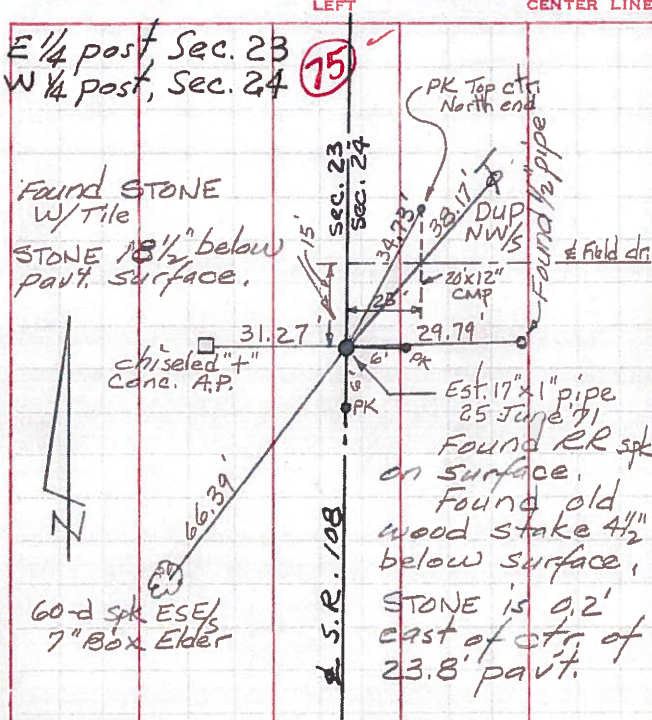 LEFT
CENTER LINE
E 1/4 post, Sec. 23
W 1/4 post, Sec. 24
75
PK Top ctr.
North end
sec. 23
sec. 24
Found 1/2" pipe
Found STONE
W/Tile
STONE 18 1/2" below
pav't. surface.
15'
34.73'
38.17'
DUP
NW/s
℄ field dr.
23'
20'x12"
CMP
31.27'
29.79'
chiseled "+"
Conc. A.P.
6'
PK
6'
PK
Est. 17"x1" pipe
25 June '71
Found RR spk
on surface.
Found old
wood stake 4 1/2"
below surface.
STONE is 0.2'
east of ctr. of
23.8' pav't.
66.39'
N
℄ S.R. 108
60-d spk ESE/s
7" Box Elder